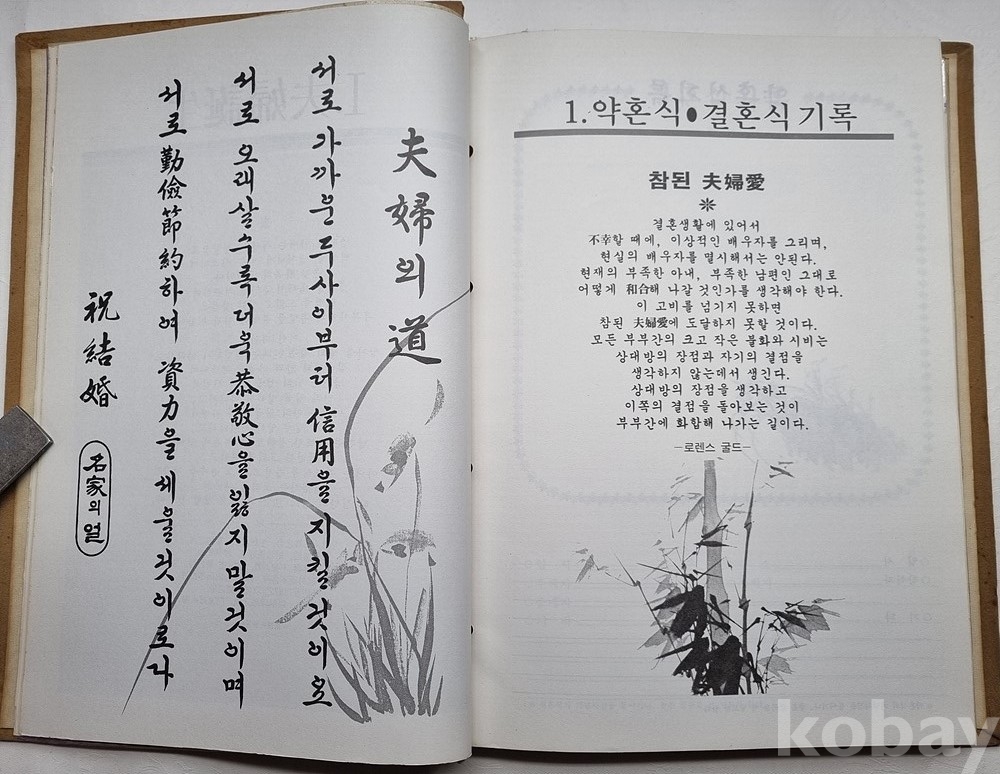 夫婦의 道
서로 가까운 두 사이부터 信用을 지킬 것이오
서로 오래 살수록 더욱 恭敬心을 잃지 말 것이며
서로 勤儉節約하여 資力을 세울 것이로다
祝結婚
名家의 얼
1. 약혼식●결혼식 기록
참된 夫婦愛
결혼생활에 있어서
不幸할 때에, 이상적인 배우자를 그리며,
현실의 배우자를 멸시해서는 안된다.
현재의 부족한 아내, 부족한 남편인 그대로
어떻게 和合해 나갈 것인가를 생각해야 한다.
이 고비를 넘기지 못하면
참된 夫婦愛에 도달하지 못할 것이다.
모든 부부간의 크고 작은 불화와 시비는
상대방의 장점과 자기의 결점을
생각하지 않는데서 생긴다.
상대방의 장점을 생각하고
이쪽의 결점을 돌아보는 것이
부부간에 화합해 나가는 길이다.
—로렌스 굴드—
kobay